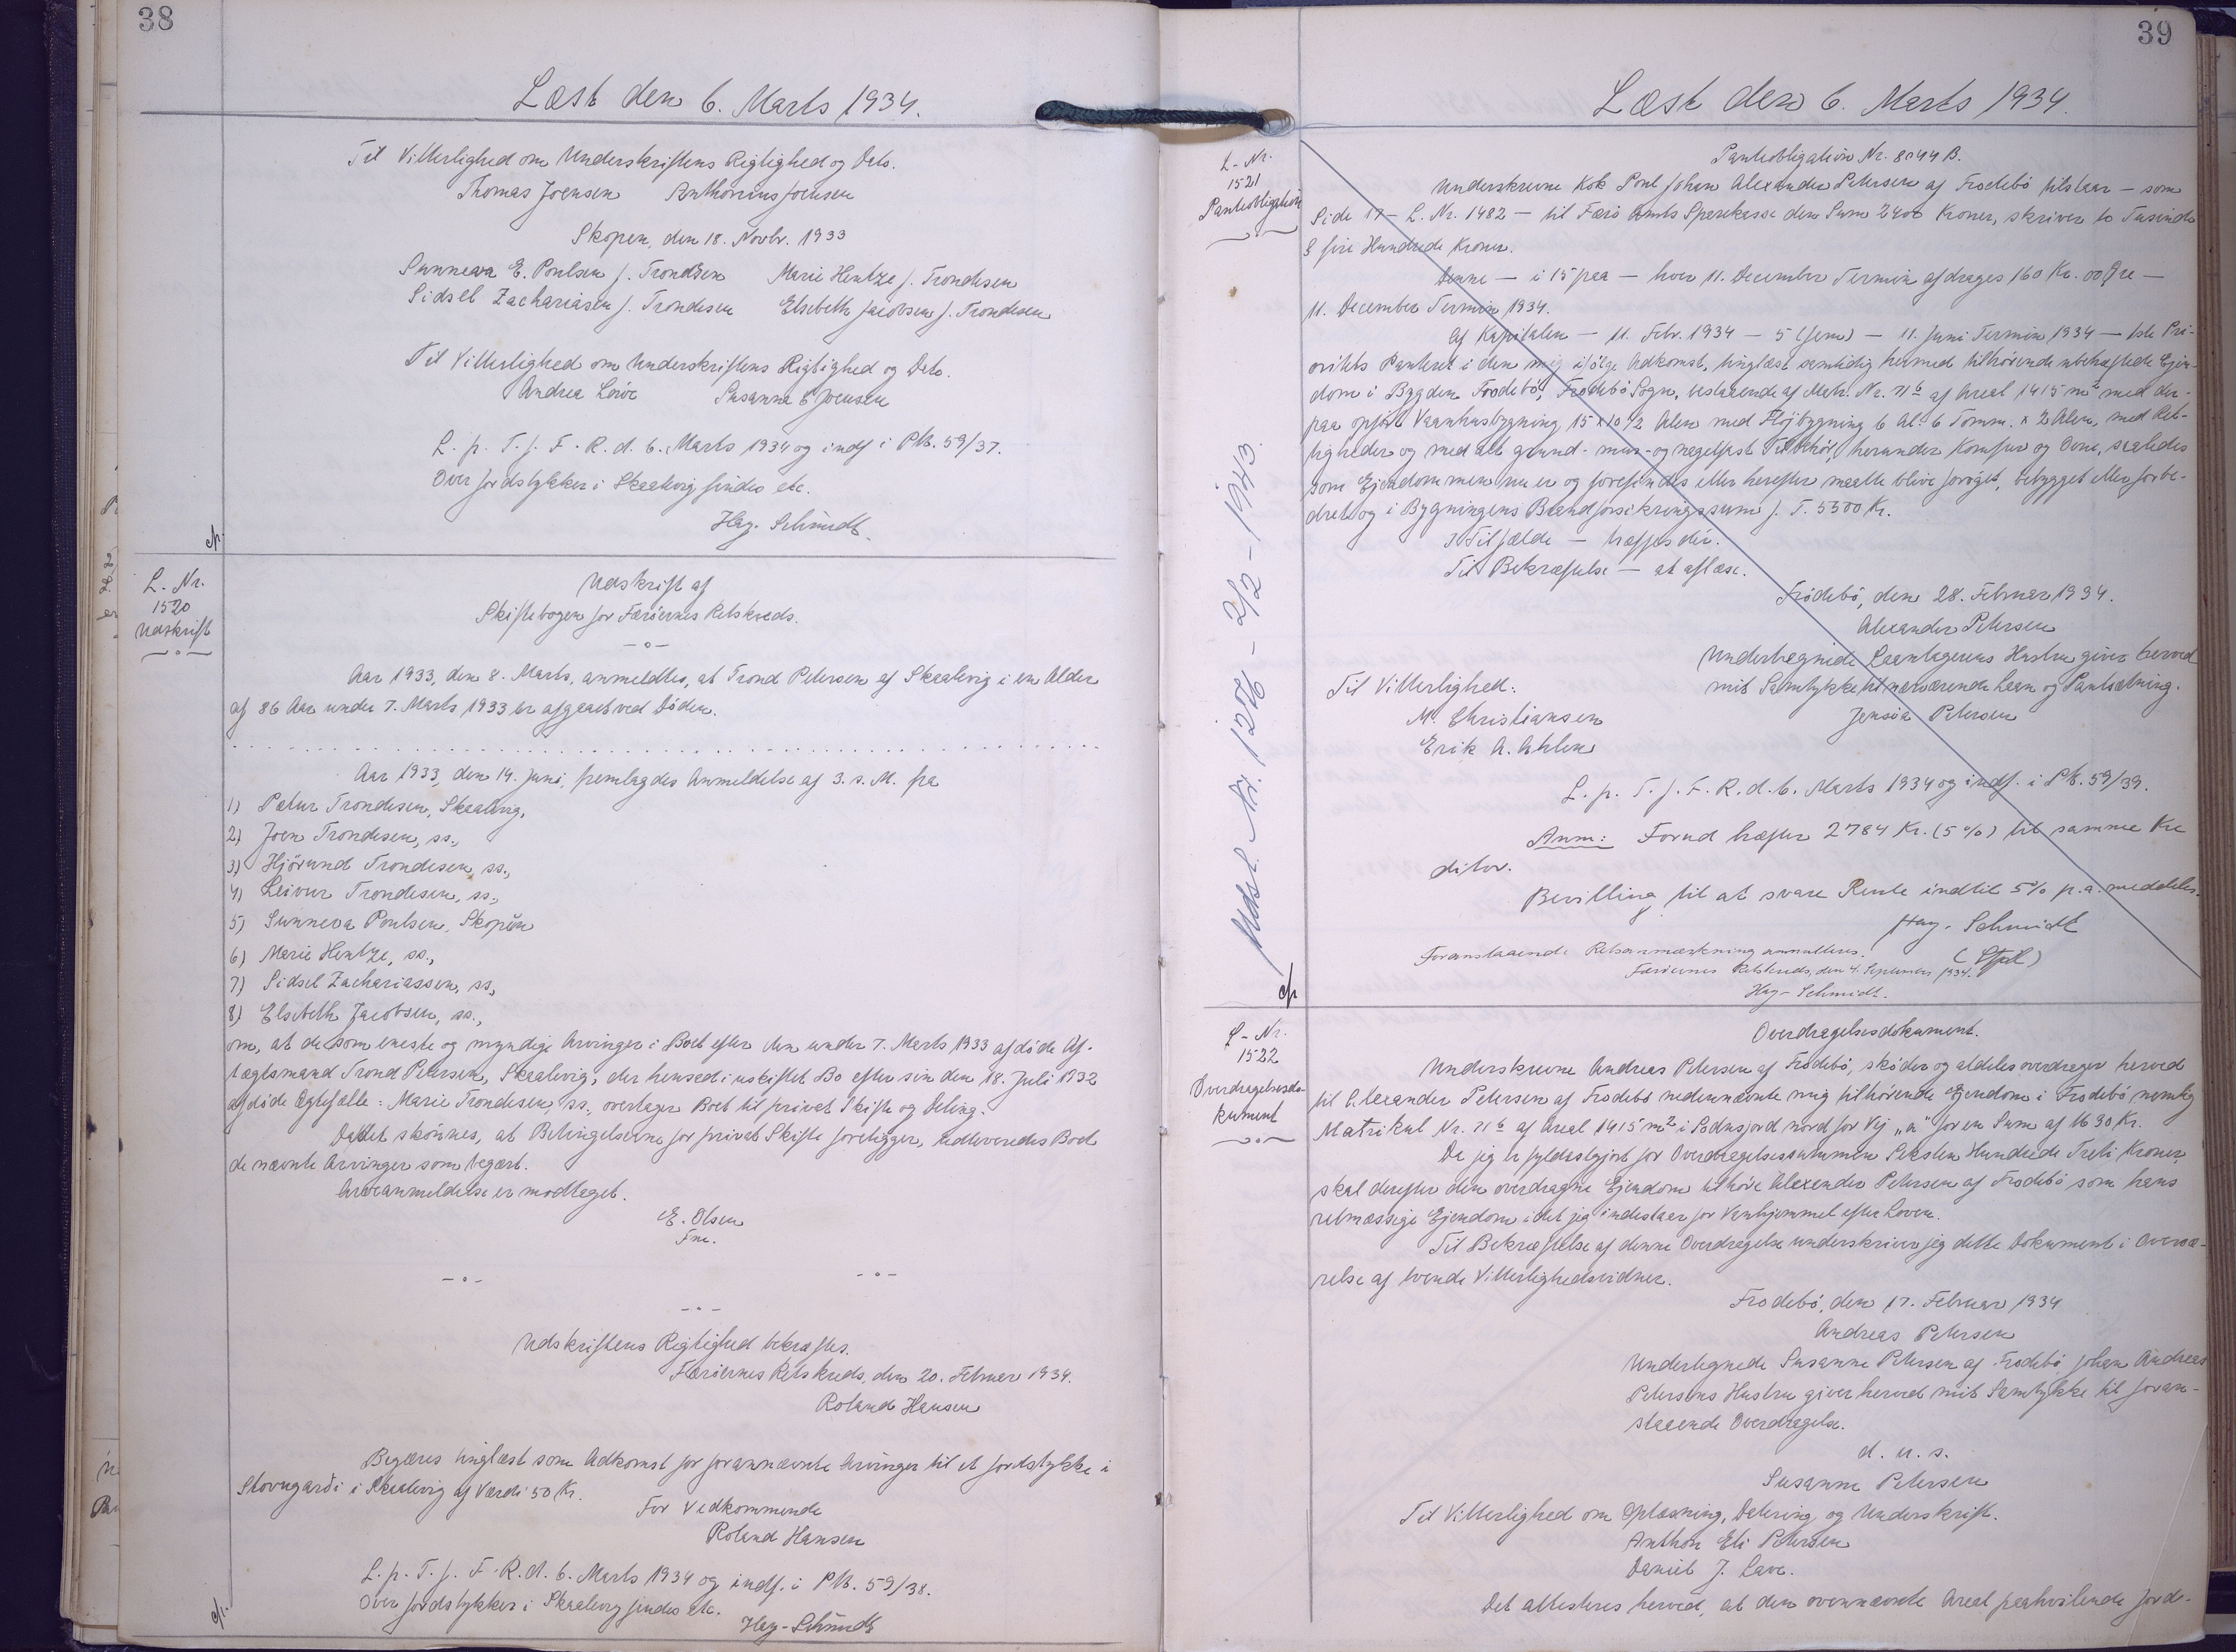 38
Læst den 6. Marts 1934.
Til Vitterlighed om Underskriftens Rigtighed og Dato.
Thomas Joensen Joensen
Skopen, den 18. Novbr. 1933
Sunneva E. Poulsen f. Trondesen Marie Hentze f. Trondesen
Sidsel Zachariasen f. Trondesen Elsebeth Jacobsen f. Trondesen
Til Vitterlighed om Underskriftens Rigtighed og Dato.
Andrea Susanna E Joensen
L. p. T. f. F. R. d. 6. Marts 1934 og indf i PB. 59/37.
Over Jordstykker i Skaalevig findes etc.
Hey-Schmidt.
L. Nr.
1520
Udskrift
Udskrift af
Skiftebogen for Færöernes Retskreds.
Aar 1933, den 8. Marts, anmeldtes, at Trond Petersen af Skaalevig i en Alder
af 86 Aar under 7. Marts 1933 er afgaaet ved Döden.
Aar 1933, den 14. Juni, fremlagdes Anmeldelse af 3. s. M. fra
1) Petur Trondesen, Skaalevig,
2) Joen Trondesen, ss.,
3) Hjörund Trondesen, ss.,
4) Leivur Trondesen, ss.,
5) Sunneva Poulsen, Skopen
6) Marie Hentze, ss.,
7) Sidsel Zachariassen, ss.,
8) Elsebeth Jacobsen, ss.,
om, at de som eneste og myndige Arvinger i Boet efter den under 7. Marts 1933 afdöde Af-
tægtsmand Trond Petersen, Skaalevig, der hensad i uskiftet Bo efter sin den 18. Juli 1932
afdöde Ægtefælle: Marie Trondesen, ss., overtager Boet til privat Skifte og Deling.
Da det skönnes, at Betingelserne for privat Skifte foreligger, udleveredes Boet
de nævnte Arvinger som begært.
Arveanmeldelse er modtaget.
E. Olsen
Fm.
Udskriftens Rigtighed bekræftes.
Færöernes Retskreds, den 20. Februar 1934.
Roland Hansen
Begæres tinglæst som Adkomst for forannævnte Arvinger til et Jordstykke i
Stovugarði i Skaalevig af Værdi 50 Kr.
For Vedkommende
Roland Hansen
L. p. T. f. F. R. d. 6. Marts 1934 og indf. i PB. 59/38.
Over Jordstykker i Skaalevig findes etc.
Hey-Schmidt
39
Læst den 6. Marts 1934.
L-Nr.
1521
Panteobligation
Udsl. Nr. 1276 - 2/2 - 1943.
Panteobligation Nr. 8044 B.
Underskrevne Kok Poul Johan Alexander Petersen af Frodebö tilstaar — som
Side 17 — L. Nr. 1482 — til Færö Amts Sparekasse den Sum 2400 Kroner, skriver to Tusinde
& fire Hundrede Kroner.
Denne — i 15 paa — hver 11. December Termin afdrages 160 Kr. 00 Öre —
11. December Termin 1934.
Af Kapitalen — 11. Febr. 1934 — 5 (fem) — 11. Juni Termin 1934 — 1ste Pri-
oritets Panteret i den mig ifölge Adkomst, tinglæst samtidig hermed tilhörende ubehæftede Ejen-
dom i Bygden Frodebö, Frodebö Sogn, bestaaende af Matr. Nr. 71b af Areal 1415 m2 med der-
paa opfört Vaanhusbygning 15 x 10 1/2 Alen med Flöjbygning 6 Al. 6 Tomm. x 2 Alen, med Ret-
tigheder og med alt grund- mur- og nagelfast Tilbehör, herunder Komfur og Ovne, saaledes
som Ejendommen nu er og forefindes eller herefter maatte blive foröget, bebygget eller forbe-
dret og i Bygningens Brandforsikringssum f. T. 5300 Kr.
I Tilfælde — træffes dér.
Til Bekræftelse — at aflæse.
Frodebö, den 28. Februar 1934.
Alexander Petersen
Undertegnede Laantagerens Hustru giver herved
mit Samtykke til nærværende Laan og Pantsætning.
Jensia Petersen
Til Vitterlighed:
M. Christiansen
Erik A.
L. p. T. f. F. R. d. 6. Marts 1934 og indf. i PB. 59/39.
Anm: Forud hæfter 2784 Kr. (5%) til samme Kre
ditor.
Bevilling til at svare Rente indtil 5% p.a. meddeles.
Hey-Schmidt
Foranstaaende Retsanmærkning annulleres.
Færöernes Retskreds, den 4. September 1934.
Hey-Schmidt.
L-Nr.
1522
Overdragelsesdo-
kument
Overdragelsesdokument.
Underskrevne Andreas Petersen af Frodebö, sköder og aldeles overdrager herved
til Alexander Petersen af Frodebö nedennævnte mig tilhörende Ejendom i Frodebö nemlig
Matrikul Nr. 71b af Areal 1415 m2 i nord for Vej „a" for en Sum af 1630 Kr.
Da jeg er fyldestgjort for Overdragelsessummen Seksten Hundrede Treti Kroner,
skal derefter den overdragne Ejendom tilhöre Alexander Petersen af Frodebö som hans
retmæssige Ejendom idet jeg indestaar for Vanhjemmel efter Loven.
Til Bekræftelse af denne Overdragelse underskriver jeg dette Dokument i Overvæ-
relse af tvende Vitterlighedsvidner.
Frodebö, den 17. Februar 1934
Andreas Petersen
Undertegnede Susanne Petersen af Frodebö Johan Andreas
Petersens Hustru giver herved mit Samtykke til foran-
staaende Overdragelse.
d. u. s.
Susanne Petersen
Til Vitterlighed om Oplæsning, Datering og Underskrift.
Anthon Eli Petersen
Daniel J. Lave.
Det attesteres herved, at den ovennævnte Areal paahvilende Jord-